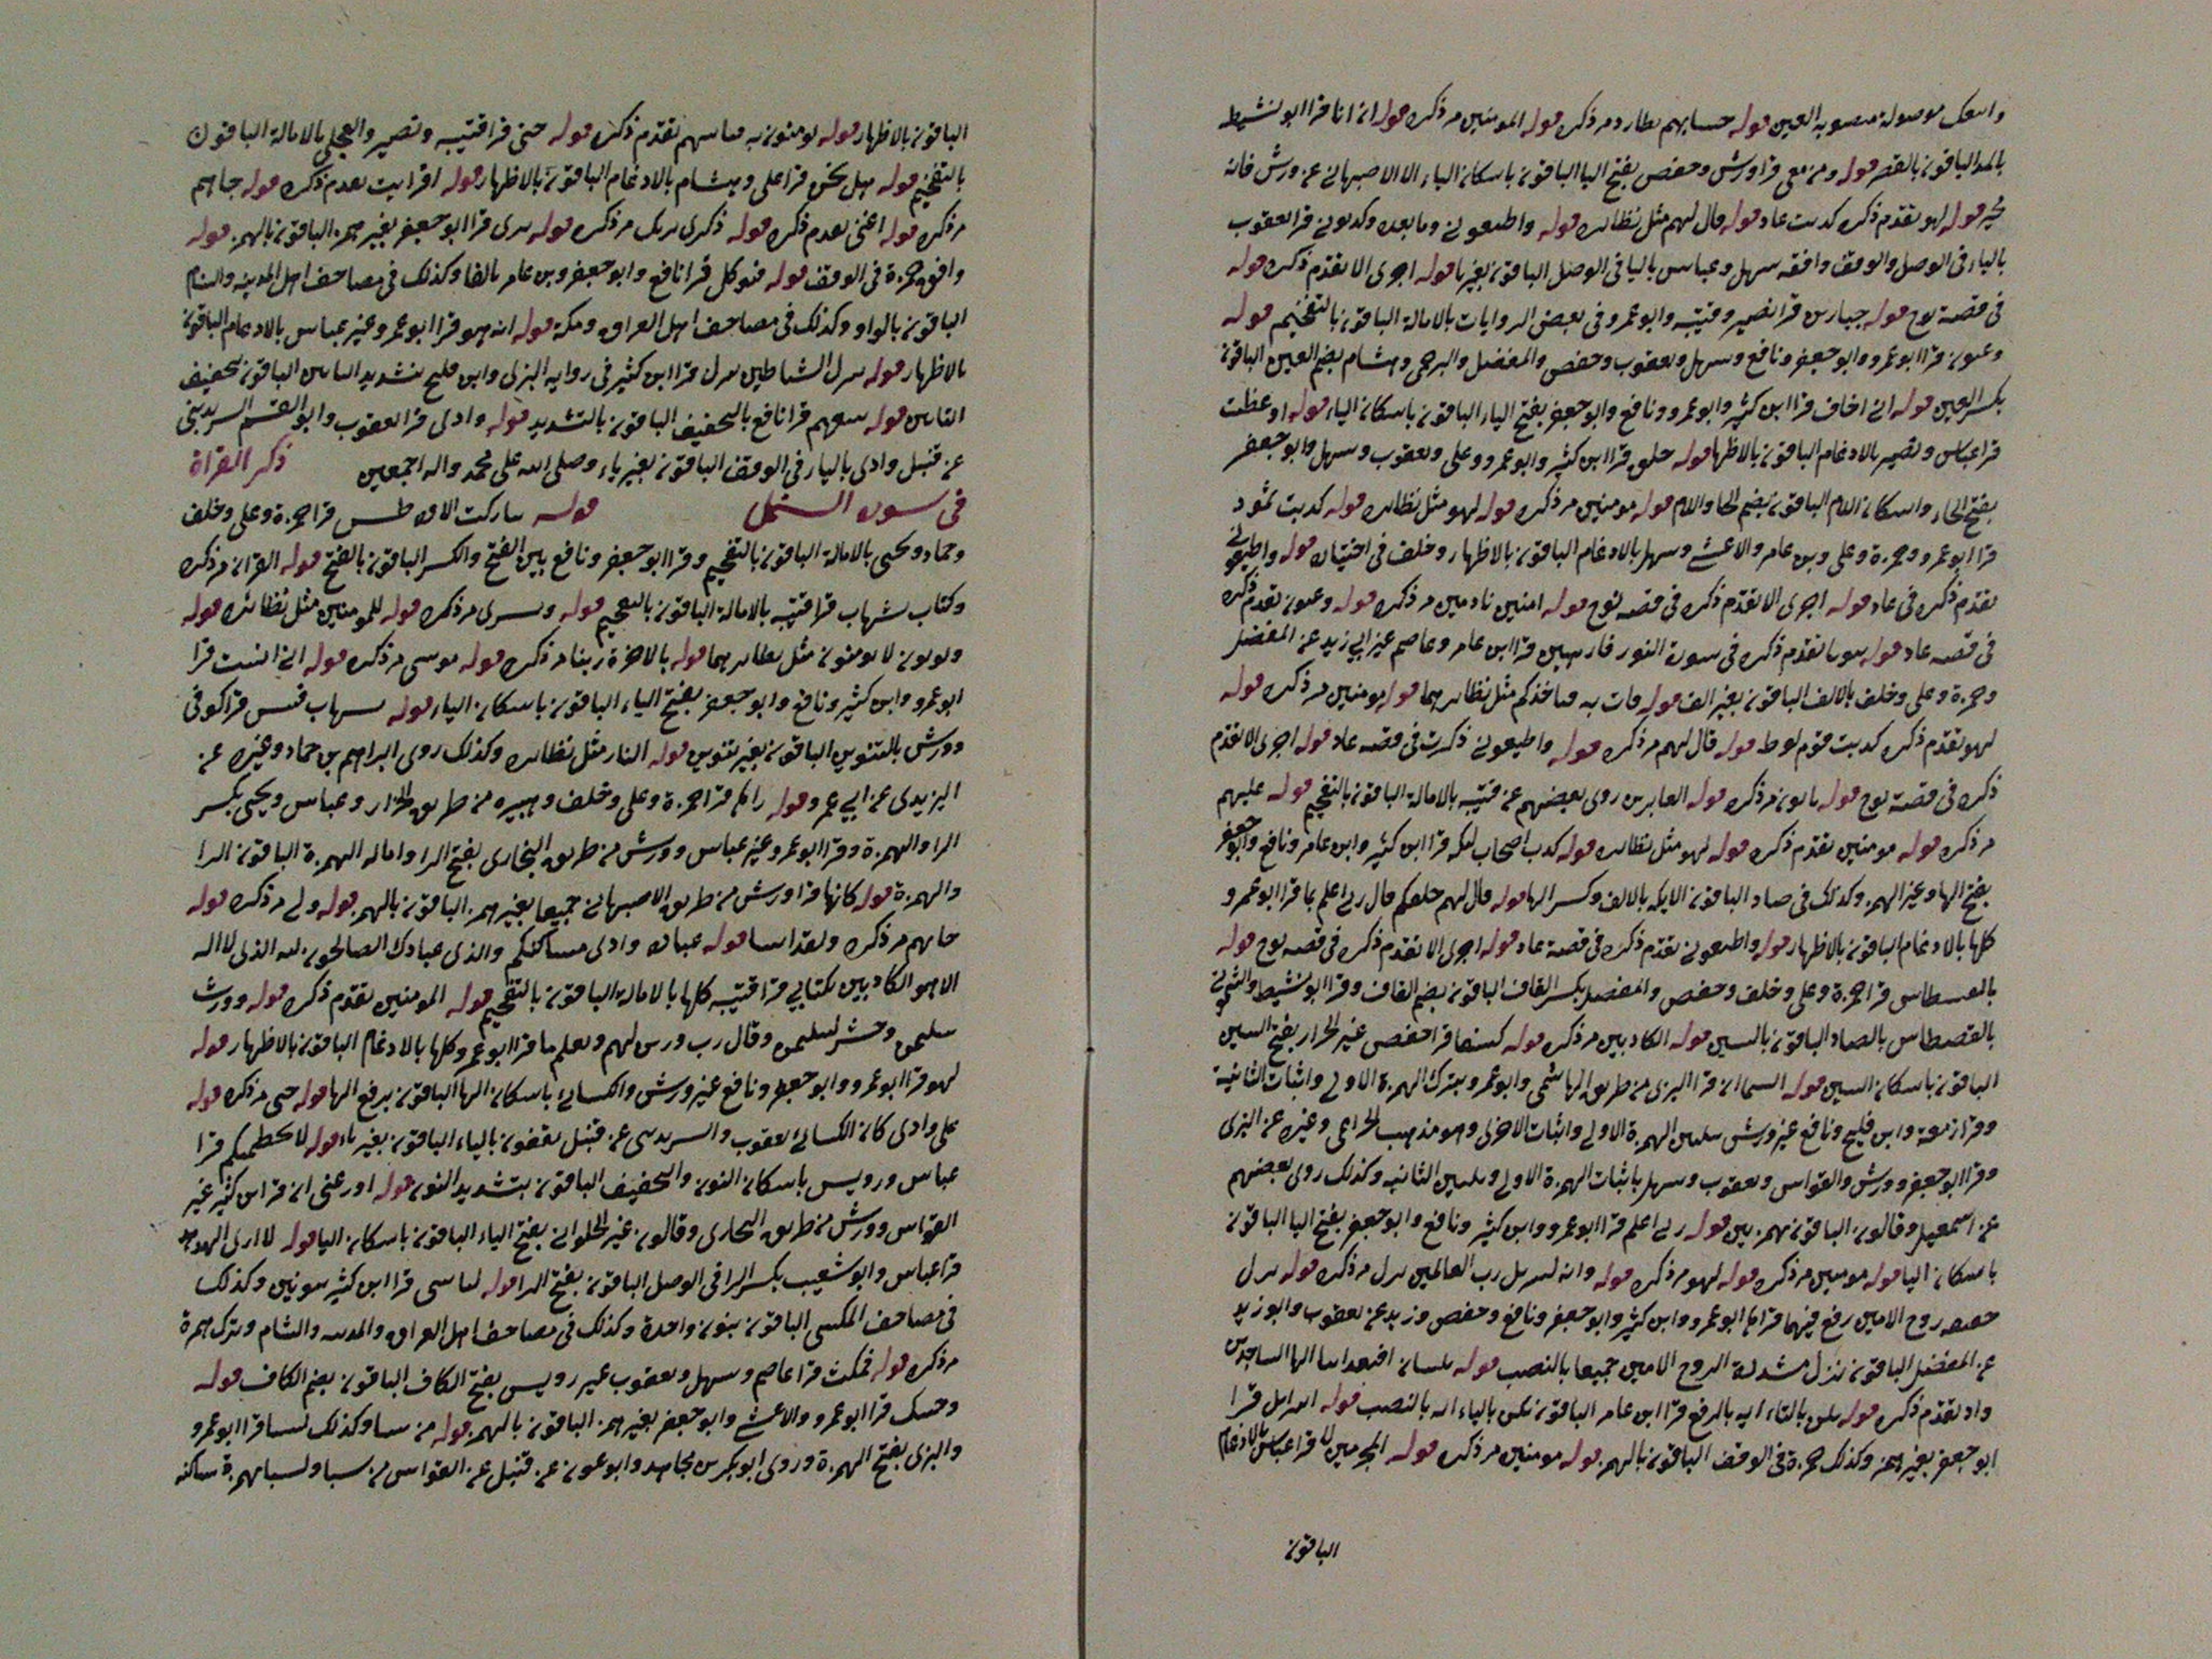 واتبعك موصولة منصوبه العين قوله حسابهم بطارد مر ذكره قوله المومنين مر ذكره قوله ان انا قرا ابو نشيط
بالمد الباقون بالقصر قوله ومن معي قرا ورش وحفص بفتح اليا الباقون باسكان الياء الا الاصبهاني عن ورش فانه
قوله لهو تقدم ذكره كذبت عاد قوله قال لهم مثل نظائره قوله واطيعوني وما بعده وكذبوني قرا يعقوب
بالياء في الوصل والوقف وافقه سهل وعباس باليا في الوصل الباقون بغير يا قوله اجرى الا تقدم ذكره قوله
في قصة نوح قوله جبارين قرا نصير وقتيبه وابو عمرو في بعض الروايات بالامالة الباقون بالتفخيم قوله
وعيون قرا ابو عمرو وابو جعفر ونافع وسهل ويعقوب وحفص والمفضل والبرجمي وهشام بضم العين الباقون
بكسر العين قوله اني اخاف قرا ابن كثير وابو عمرو ونافع وابو جعفر بفتح الياء الباقون باسكان الياء قوله اوعظت
قرا عباس ونصير بالادغام الباقون بالاظهار قوله خلق قرا ابن كثير وابو عمرو وعلي ويعقوب وسهل وابو جعفر
بفتح الخاء واسكان اللام الباقون بضم الخا واللام قوله مومنين مر ذكره قوله لهو مثل نظائره قوله كذبت ثمود
قرا ابو عمرو وحمزة وعلي وبن عامر والاعشى وسهل بالادغام الباقون بالاظهار وخلف في اختياره قوله واطيعوني
تقدم ذكره في عاد قوله اجرى الا تقدم ذكره في قصه نوح قوله امنين نادمين مر ذكره قوله وعيون تقدم ذكره
في قصه عاد قوله بيوتا تقدم ذكره في سورة النور فارهين قرا ابن عامر وعاصم غير ابي زيد عن المفضل
وحمزة وعلي وخلف بالالف الباقون بغير الف قوله فات به فياخذكم مثل نظائرهما قوله مومنين مر ذكره قوله
لهو تقدم ذكره كذبت قوم لوط قوله قال لهم مر ذكره قوله واطيعوني ذكرت في قصه عاد قوله اجرى الا تقدم
ذكره في قصة نوح قوله ياتون مر ذكره قوله الغابرين روى بعضهم عن قتيبه بالامالة الباقون بالتفخيم قوله عليهم
مر ذكره قوله مومنين تقدم ذكره قوله لهو مثل نظائره قوله كذب اصحاب ليكه قرا ابن كثير وابن عامر ونافع وابو جعفر
بفتح الها وغير الهمز وكذلك في صاد الباقون الايكه بالالف وكسر الها قوله قال لهم خلقكم قال ربي اعلم بما قرا ابو عمرو
كلها بالادغام الباقون بالاظهار قوله واطيعوني تقدم ذكره في قصة عاد قوله اجرى الا تقدم ذكره في قصه نوح قوله
بالقسطاس قرا حمزة وعلي وخلف وحفص والمفضل بكسر القاف الباقون بضم القاف وقرا ابو نشيط والشموني
بالقصطاس بالصاد الباقون بالسين قوله الكاذبين مر ذكره قوله كسفا قرا حفص غير الخزاز بفتح السين
الباقون باسكان السين قوله السما ان قرا البزي من طريق الهاشمي وابو عمرو بترك الهمزة الاولى واثبات الثانية
وقرا زمعة وابن فليح ونافع غير ورش بتليين الهمزة الاولى واثبات الاخرى وهو مذهب الخزاعي وغيره عن البزي
وقرا ابو جعفر وورش والقواس ويعقوب وسهل باثبات الهمزة الاولى وتليين الثانيه وكذلك روى بعضهم
عن اسمعيل وقالون الباقون بهمزتين قوله ربي اعلم قرا ابو عمرو وابن كثير ونافع وابو جعفر بفتح اليا الباقون
باسكان اليا قوله مومنين مر ذكره قوله لهو مر ذكره قوله وانه لتنزيل رب العالمين نزل مر ذكره قوله نزل
خفيفه روح الامين رفع فيهما قراها ابو عمرو وابن كثير وابو جعفر ونافع وحفص وزيد عن يعقوب وابو زيد
عن المفضل الباقون نزل مشددة الروح الامين جميعا بالنصب قوله بلسان افبعذابنا الها الساجدين
واد تقدم ذكره قوله يكن بالتاء ايه بالرفع قرا ابن عامر الباقون يكن بالياء ايه بالنصب قوله اسرايل قرا
ابو جعفر بغير همز وكذلك حمزة في الوقف الباقون بالهمز قوله مومنين مر ذكره قوله المجرمين لا قرا عباس بالادغام
الباقون
الباقون بالاظهار قوله يومنون به فياتيهم تقدم ذكره قوله حتى قرا قتيبه ونصير والعجلي بالامالة الباقون
بالتفخيم قوله هل نحن قرا علي وهشام بالادغام الباقون بالاظهار قوله افرايت تقدم ذكره قوله جاهم
مر ذكره قوله اغنى تقدم ذكره قوله ذكرى يريك مر ذكره قوله برى قرا ابو جعفر بغير همز الباقون بالهمز قوله
وافق حمزة في الوقف قوله فتوكل قرا نافع وابو جعفر وبن عامر بالفا وكذلك في مصاحف اهل المدينه والشام
الباقون بالواو وكذلك في مصاحف اهل العراق ومكة قوله انه هو قرا ابو عمرو غير عباس بالادغام الباقون
بالاظهار قوله تنزل الشياطين تنزل قرا ابن كثير في روايه البزي وابن فليح بتشديد التاين الباقون بتخفيف
التاين قوله يتبعهم قرا نافع بالتخفيف الباقون بالتشديد قوله وادى قرا يعقوب وابو القسم السرنديبي
عن قنبل وادى باليا في الوقف الباقون بغير ياء وصلى الله على محمد واله اجمعين ذكر القراة
في سورة النمل قوله تباركت الاوه طس قرا حمزة وعلي وخلف
وحماد ويحيى بالامالة الباقون بالتفخيم وقرا ابو جعفر ونافع بين الفتح والكسر الباقون بالفتح قوله القران مر ذكره
وكتاب شهاب قرا قتيبه بالامالة الباقون بالتفخيم قوله وبشرى مر ذكره قوله للمومنين مثل نظائره قوله
ويوتون لا يومنون مثل نظائرهما قوله بالاخرة زينا مر ذكره قوله موسى مر ذكره قوله اني انست قرا
ابو عمرو وابن كثير ونافع وابو جعفر بفتح الياء الباقون باسكان الياء قوله بشهاب قبس قرا كوفي
وورش بالتنوين الباقون بغير تنوين قوله النار مثل نظائره وكذلك روى ابراهيم بن حماد وغيره عن
اليزيدي عن ابي عمرو قوله راها قرا حمزة وعلي وخلف وهبيره من طريق الخزاز وعباس ويحيى بكسر
الرا والهمزة وقرا ابو عمرو غير عباس وورش من طريق البخاري بفتح الرا وامالة الهمزة الباقون الرا
والهمزة قوله كانها قرا ورش من طريق الاصبهاني جميعا بغير همز الباقون بالهمز قوله ولى مر ذكره قوله
جاتهم مر ذكره ولقد اتينا قوله عباده وادى مساكنكم والذي عبادك الصالحون لله الذي لا اله
الا هو الكاذبين بكتابي قرا قتيبه كلها بالامالة الباقون بالتفخيم قوله المومنين تقدم ذكره قوله وورث
سليمن وحشر لسليمن وقال رب وزين لهم ويعلم ما قرا ابو عمرو كلها بالادغام الباقون بالاظهار قوله
لهو قرا ابو عمرو وابو جعفر ونافع غير ورش والكسائي باسكان الها الباقون برفع الها قوله حتى مر ذكره قوله
على وادى كان الكسائي يعقوب والسرنديبي عن قنبل يقفون بالياء الباقون بغير ياء قوله لا يحطمنكم قرا
عباس ورويس باسكان النون والتخفيف الباقون بتشديد النون قوله اوزعني ان قرا ابن كثير غير
القواس وورش من طريق البخاري وقالون غير الحلواني بفتح الياء الباقون باسكان اليا قوله لا ارى الهدهد
قرا عباس وابو شعيب بكسر الرا في الوصل الباقون بفتح الرا قوله لياتيني قرا ابن كثير بنونين وكذلك
في مصاحف المكيين الباقون بنون واحدة وكذلك في مصاحف اهل العراق والمدينه والشام ويترك همزة
مر ذكره قوله فمكث قرا عاصم وسهل ويعقوب غير رويس بفتح الكاف الباقون بضم الكاف قوله
وجيتك قرا ابو عمرو والاعشى وابو جعفر بغير همز الباقون بالهمز قوله من سبا وكذلك لسبا قرا ابو عمرو
والبزي بفتح الهمزة وروى ابو بكر بن مجاهد وابو عون عن قنبل عن القواس من سبا ولسبا بهمزة ساكنه